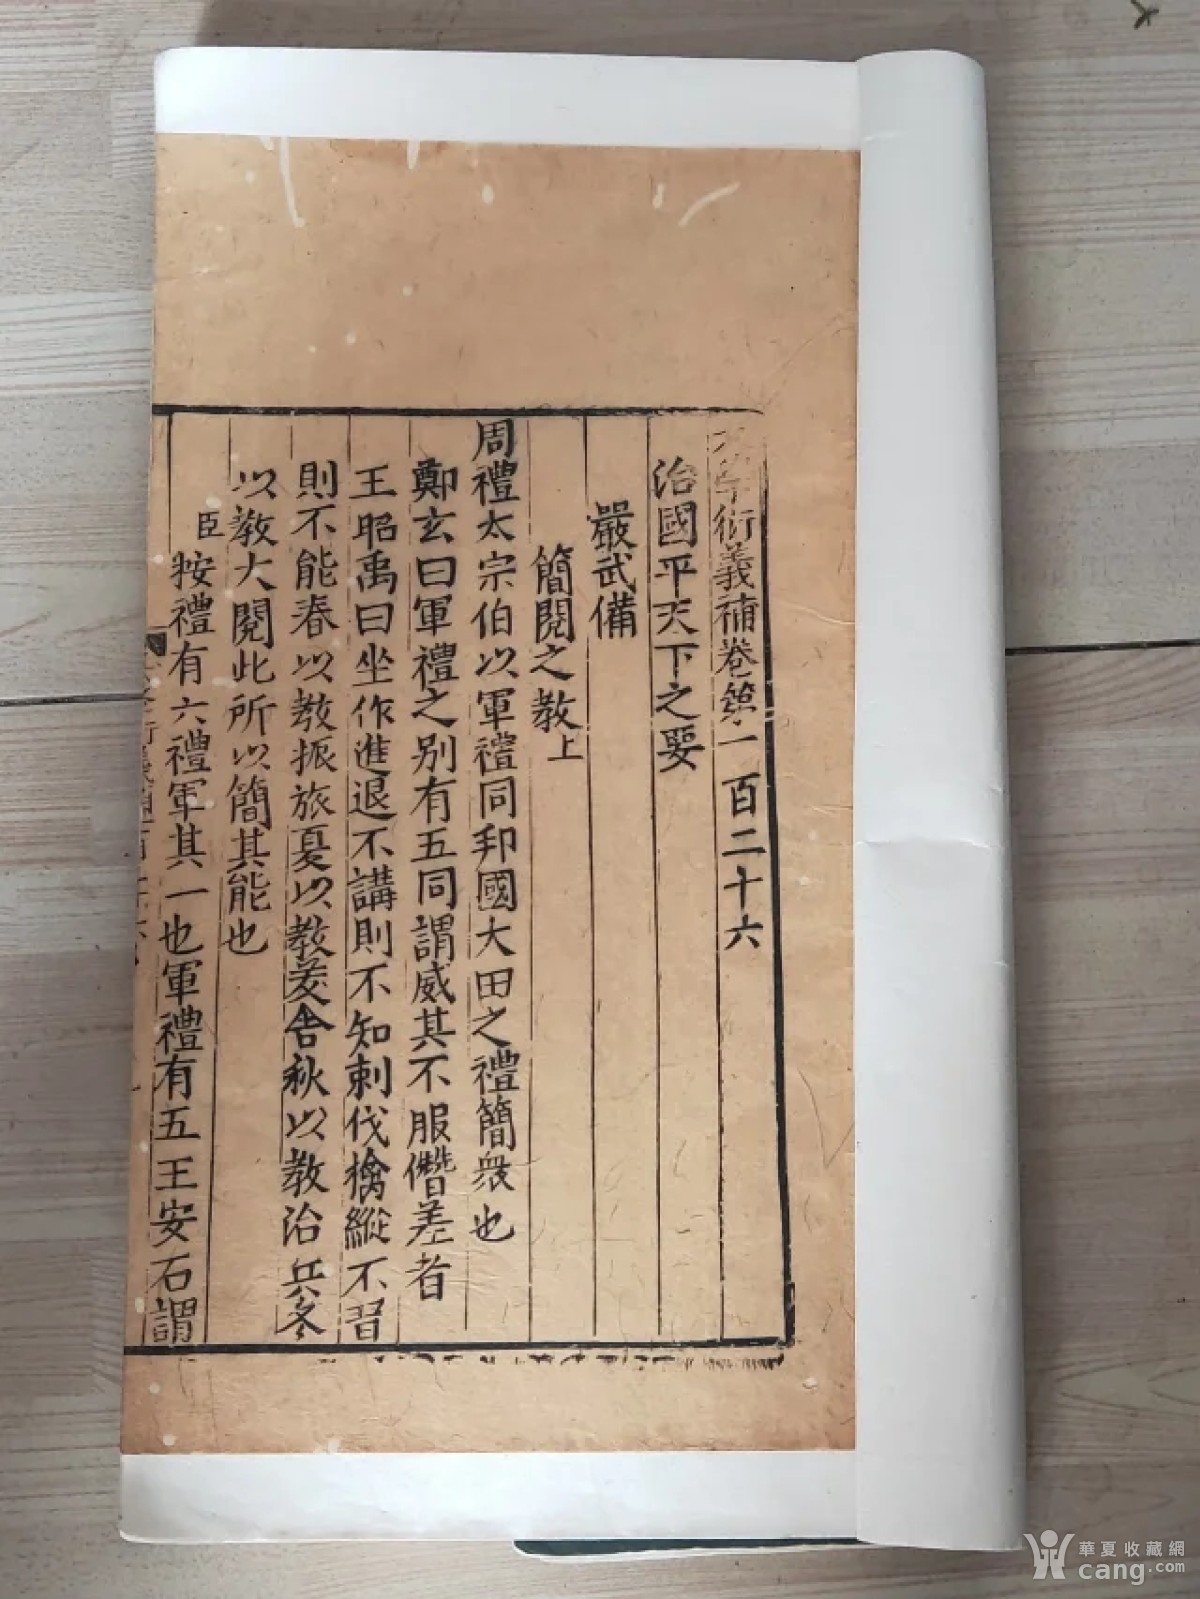 大學衍義補卷第一百二十六
治國平天下之要
嚴武備
簡閱之教上
周禮太宗伯以軍禮同邦國大田之禮簡衆也
鄭玄曰軍禮之别有五同謂威其不服僭差者
王昭禹曰坐作進退不講則不知刺伐擒縱不習
則不能春以教振旅夏以教茇舍秋以教治兵冬
以教大閱此所以簡其能也
臣按禮有六禮軍其一也軍禮有五王安石謂
華夏收藏網
cang.com